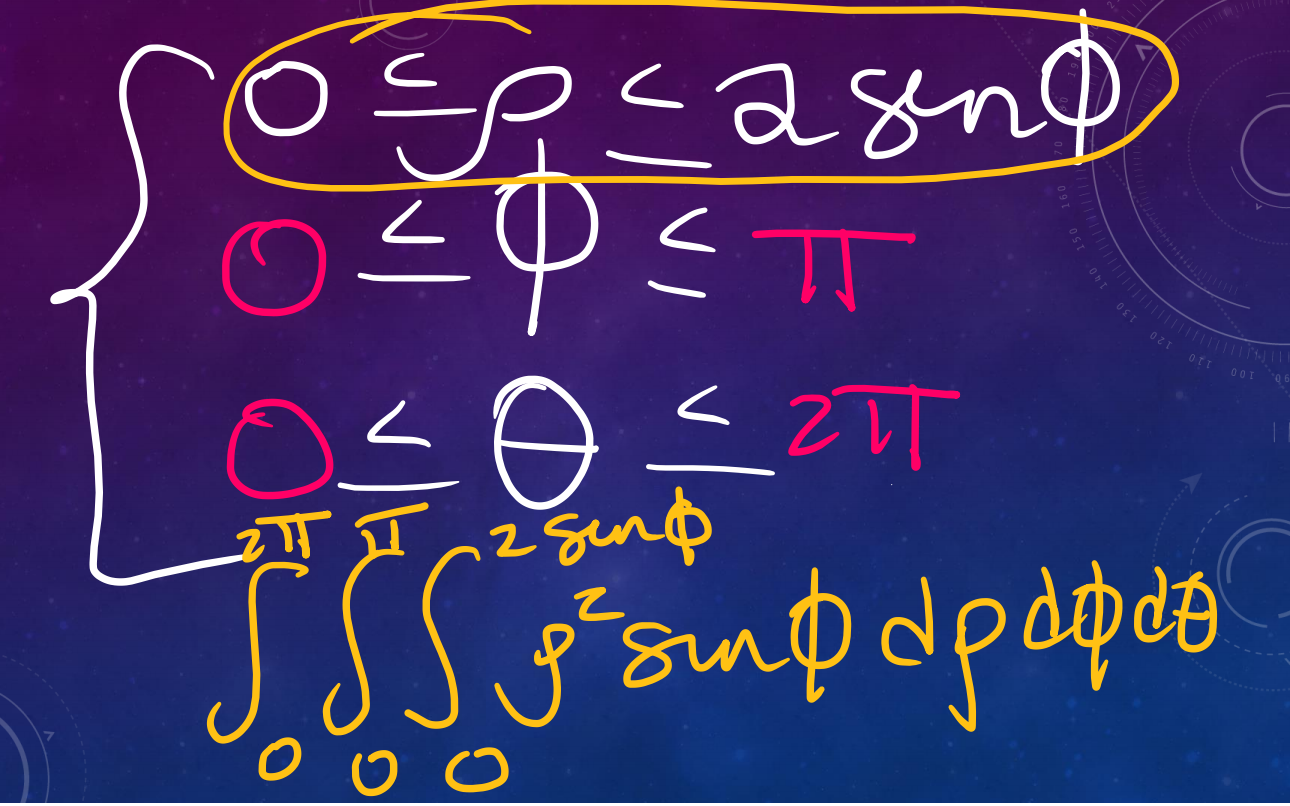 0 ≤ ρ ≤ 2 sen φ
0 ≤ φ ≤ π
0 ≤ θ ≤ 2π
∫₀^{2π} ∫₀^{π} ∫₀^{2 sen φ} ρ² sen φ dρ dφ dθ